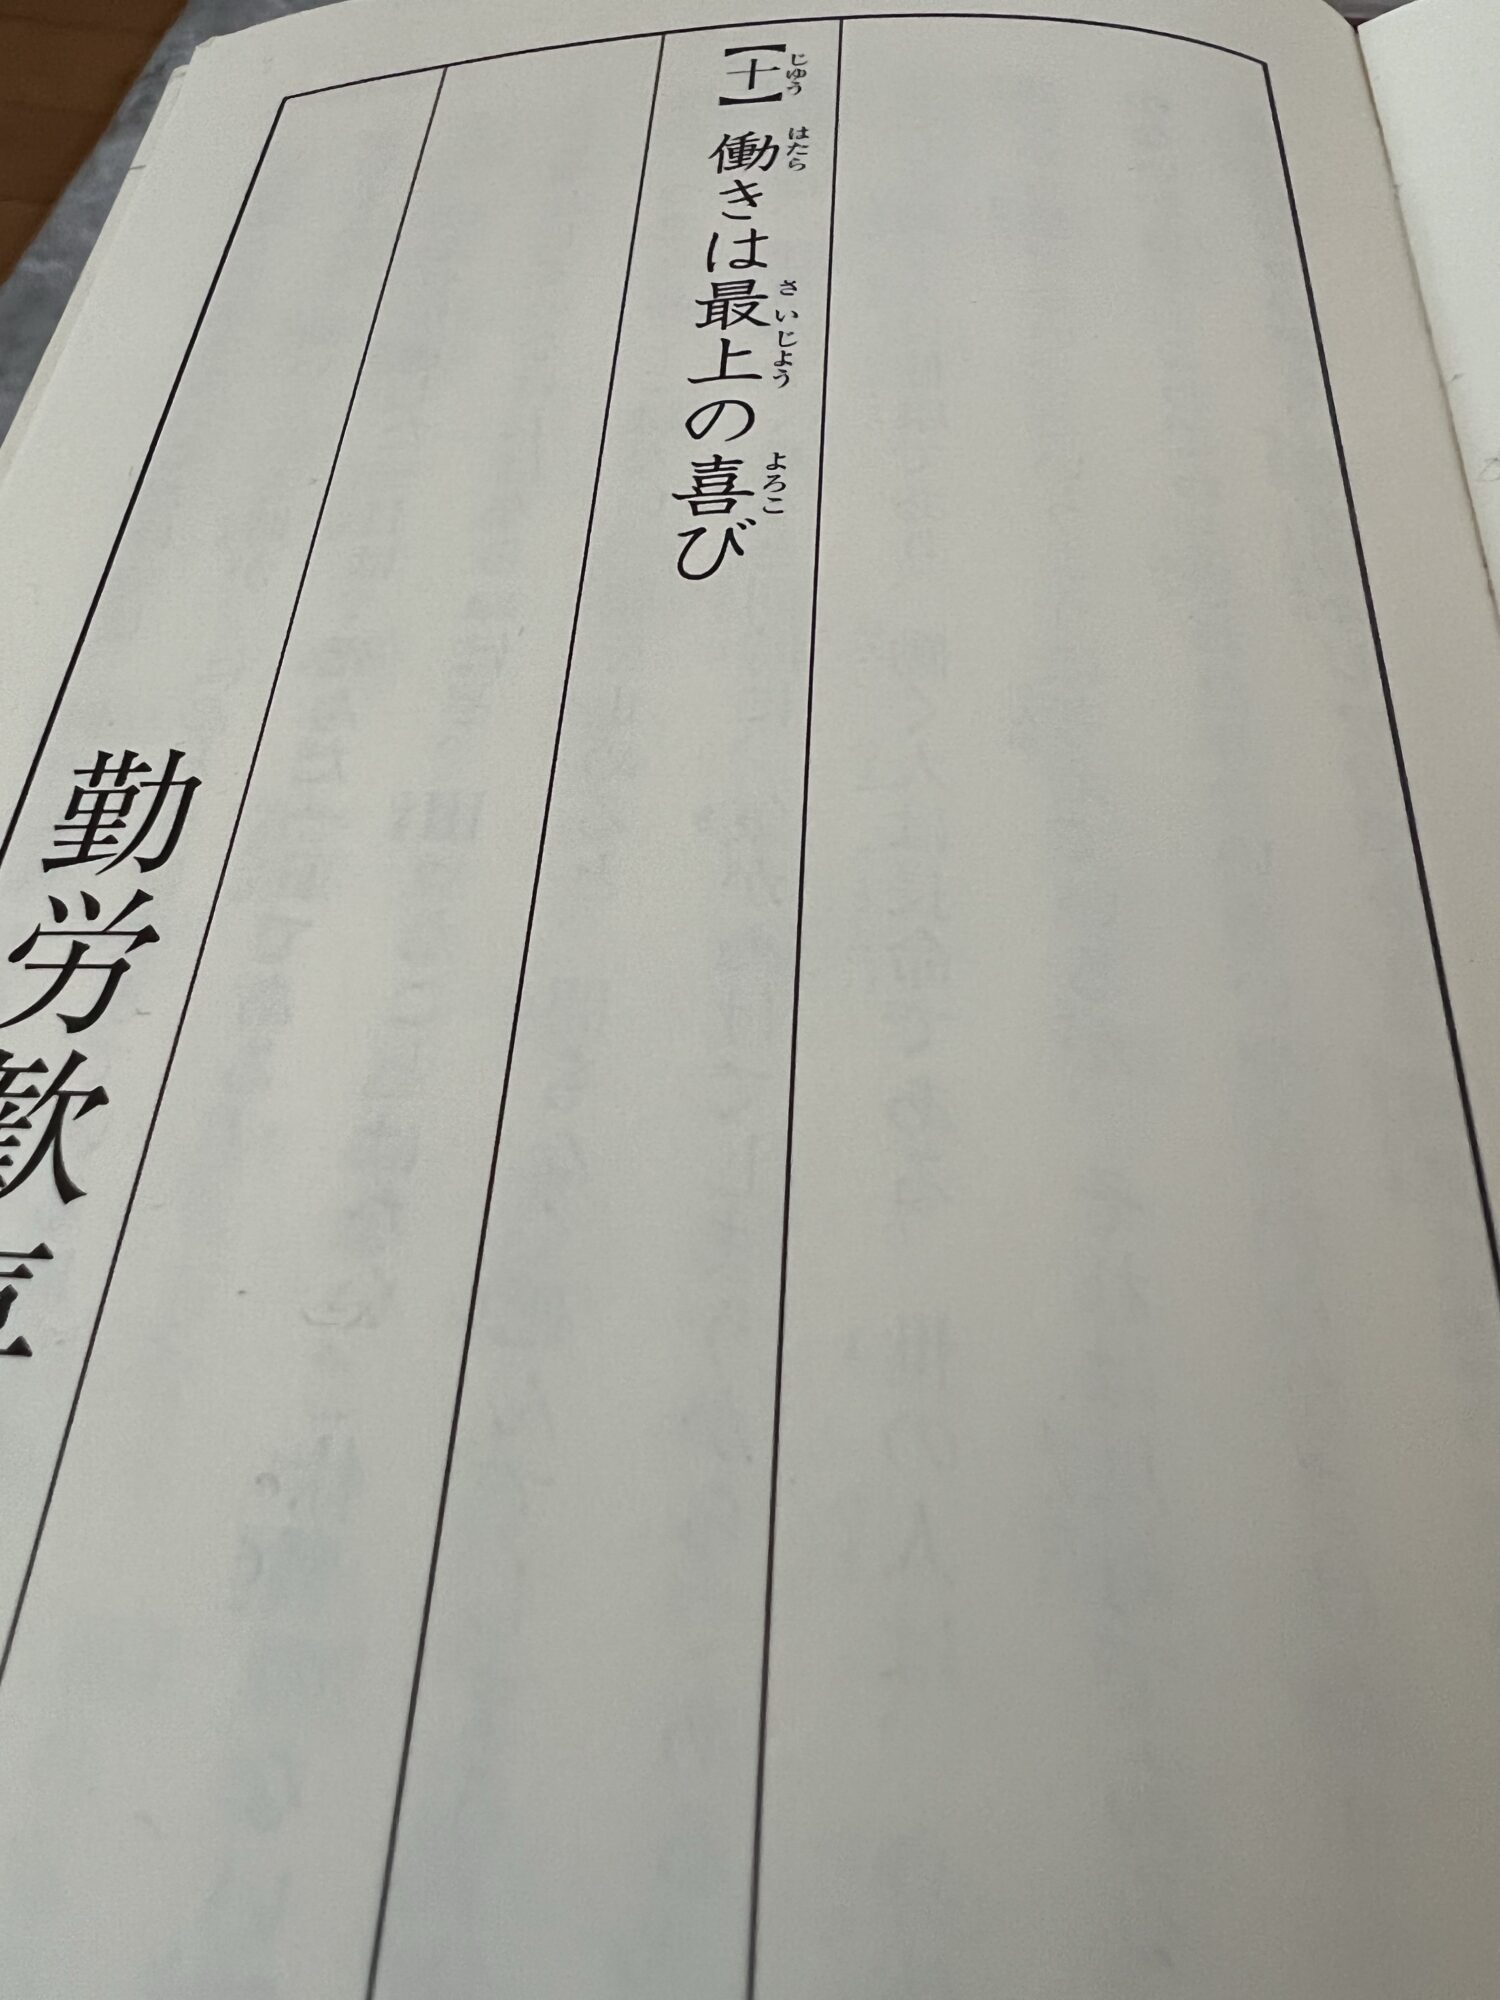 【十】働きは最上の喜び
じゅう はたら さいじょう よろこ
勤労歓